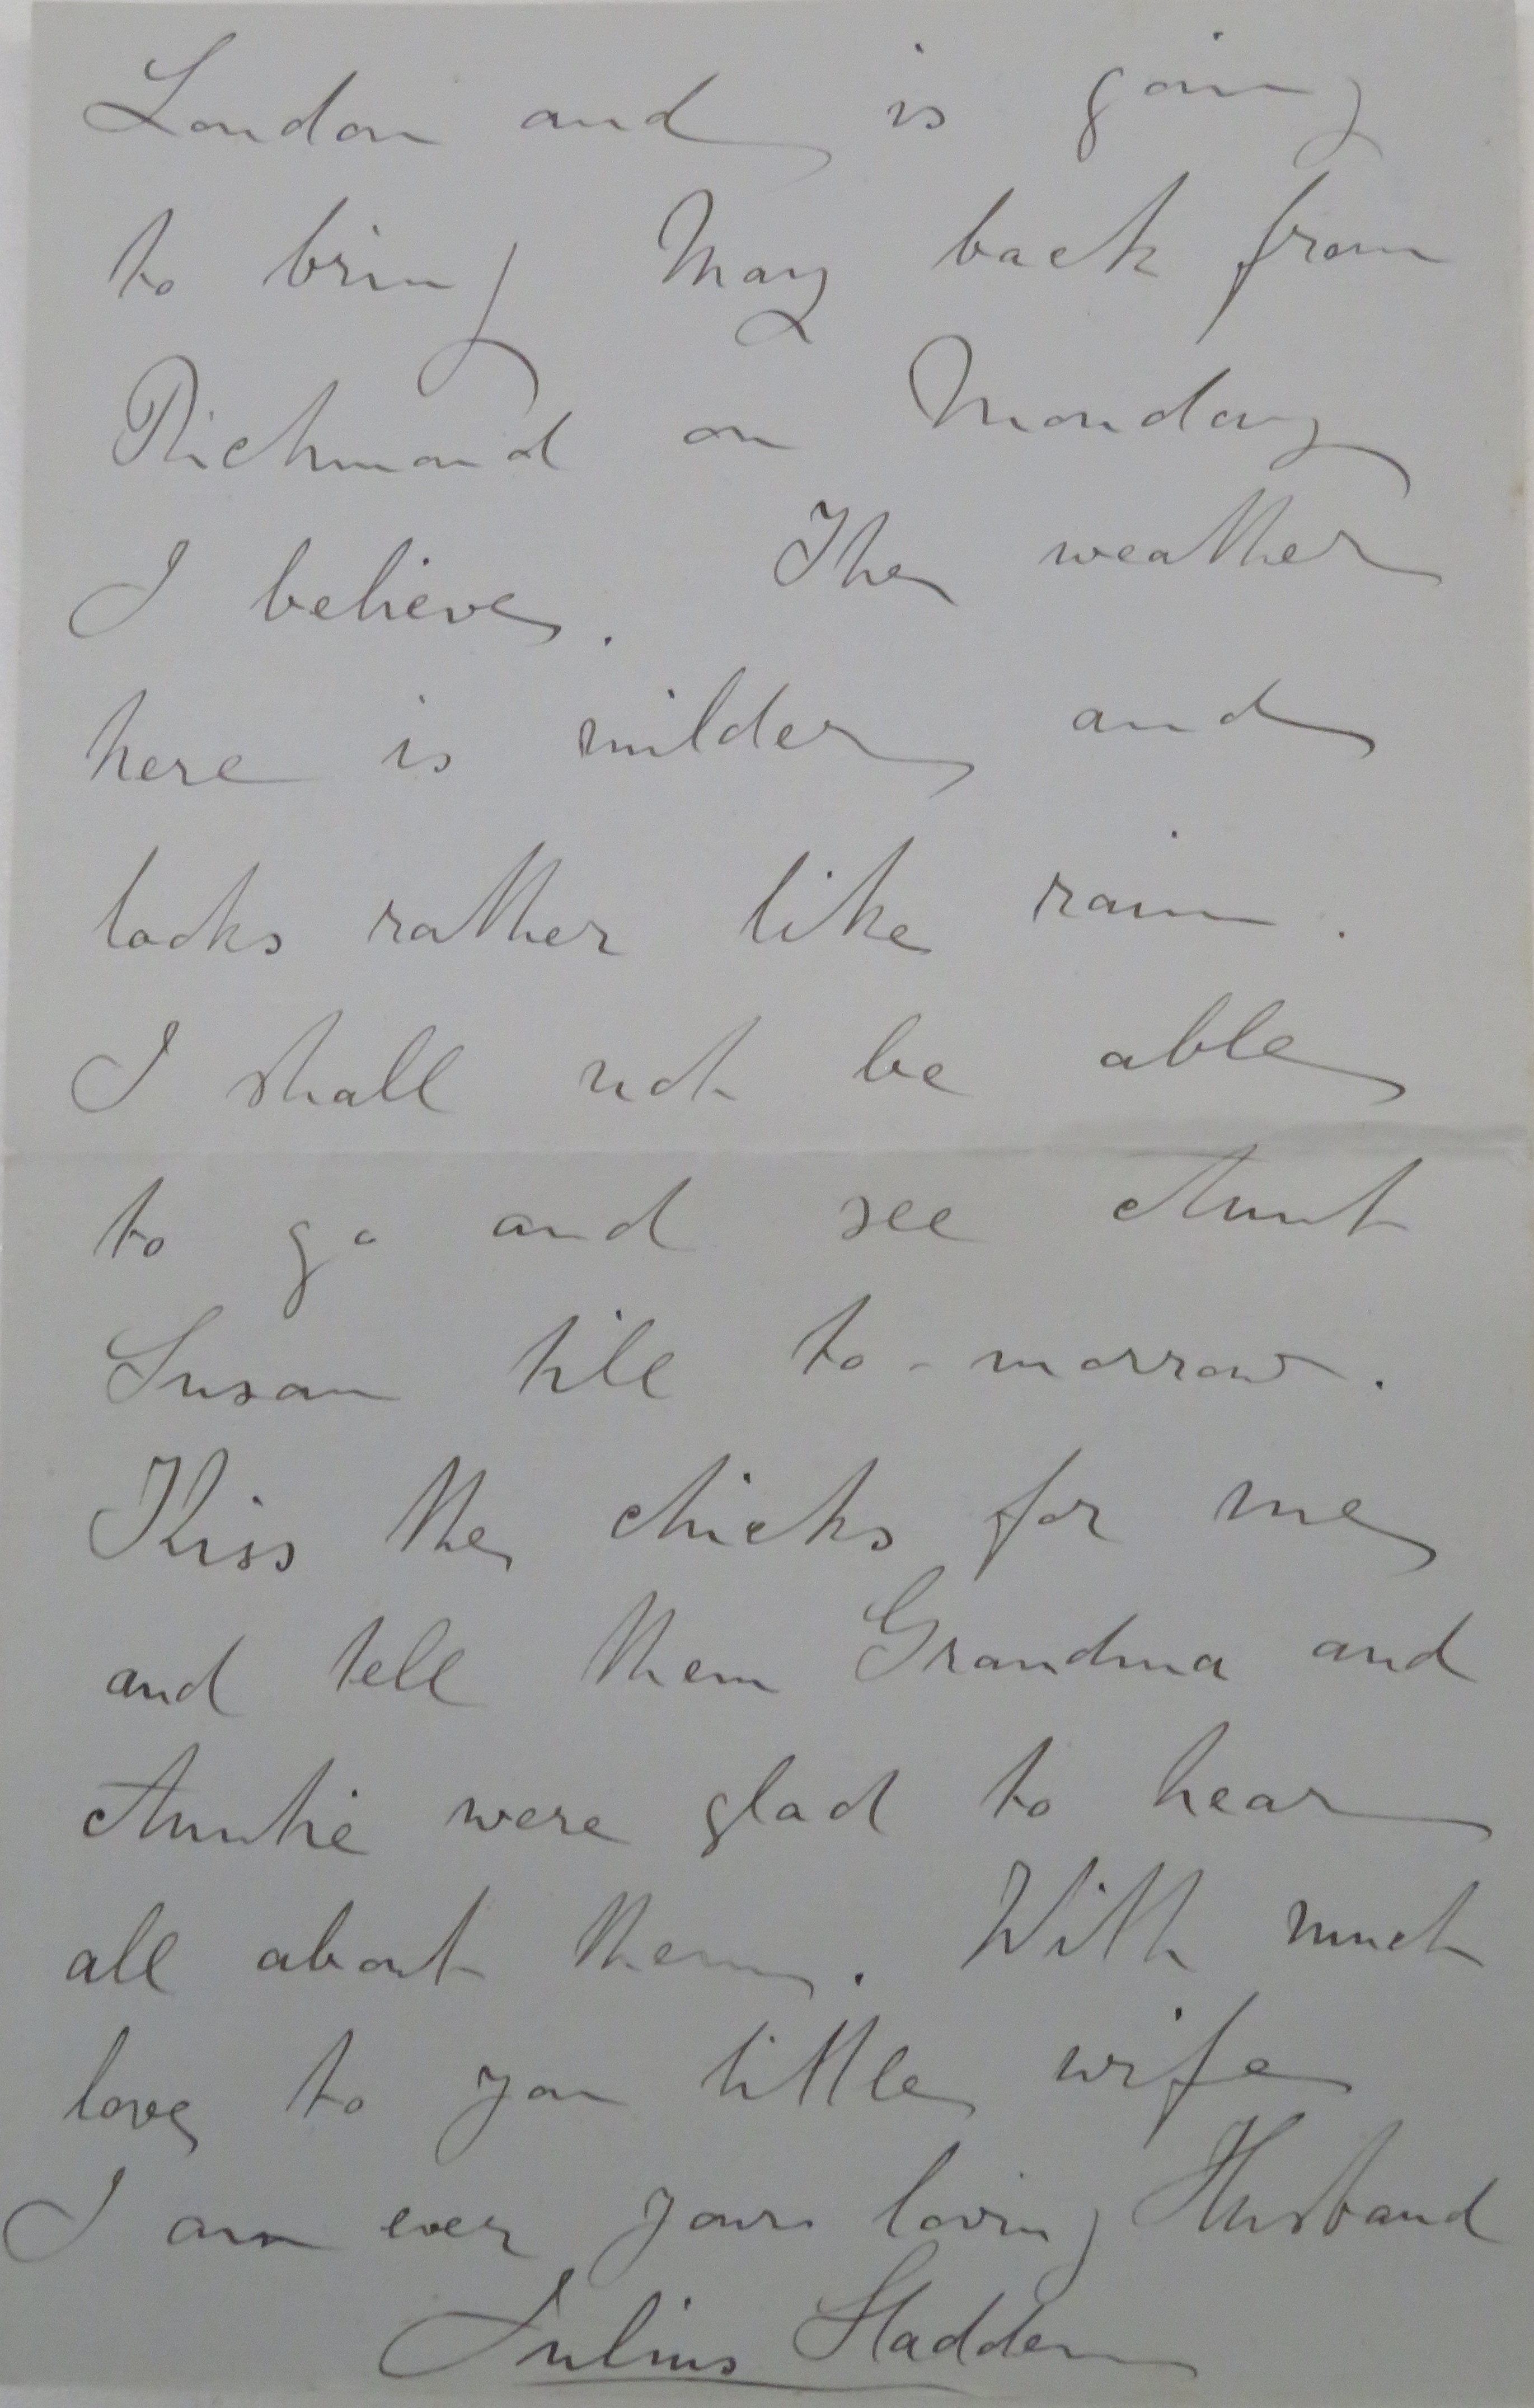 London and is going
to bring May back from
Richmond on Monday
I believe. The weather
here is milder and
looks rather like rain.
I shall not be able
to go and see Aunt
Susan till to-morrow.
Kiss the chicks for me
and tell them Grandma and
Auntie were glad to hear
all about them. With much
love to you little wife
I am ever your loving Husband
Julius Sladden